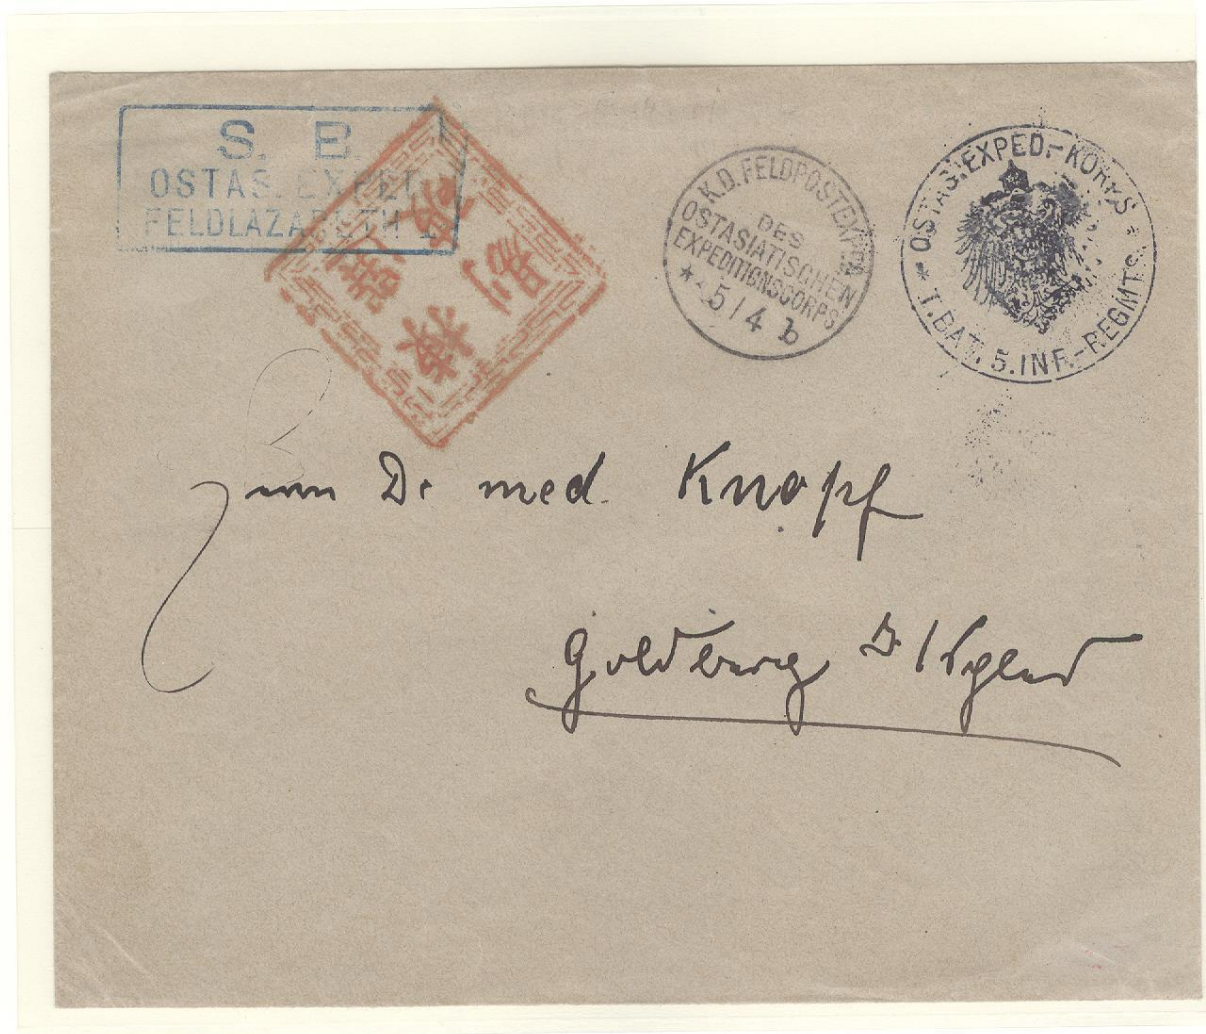 S. B.
OSTAS. EXPED.
FELDLAZARETH
K.D. FELDPOSTEXPED.
DES
OSTASIATISCHEN
EXPEDITIONSCORPS
* 5/4 b
* OSTAS. EXPED.-KORPS *
I. BAT. 5. INF.-REGMTS.
Dr med. Knopf
Goldberg